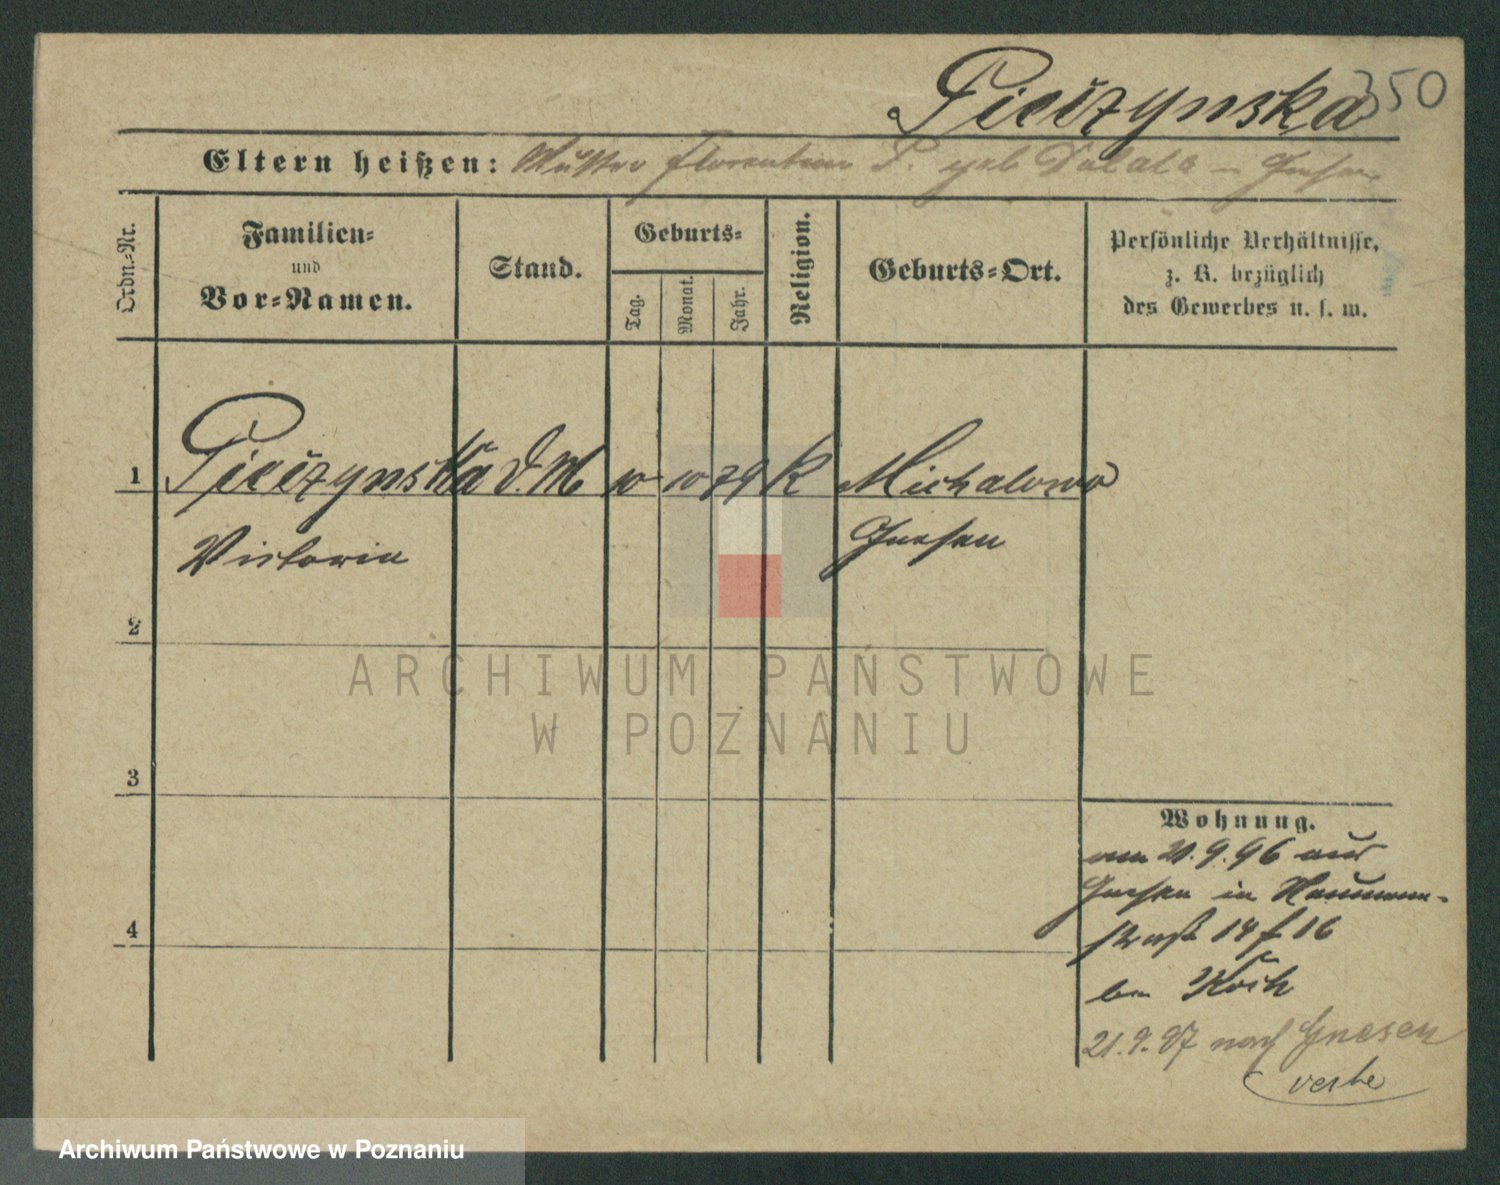 Pieczynska 350
Eltern heißen: Mutter Florentine P. geb. in Gnesen
Ordn.-Nr.
Familien-
und
Vor-Namen.
Stand.
Geburts-
Tag.
Monat.
Jahr.
Religion.
Geburts-Ort.
Persönliche Verhältnisse,
z. B. bezüglich
des Gewerbes u. s. w.
1 Pieczynska D.M. 10 10 79 K Michalowo
Victoria Gnesen
2
3
4
Wohnung.
vom 21.9.96 aus
Gnesen in Naumann-
straße 14/16
bei Koch
21.9.97 nach Gnesen
ARCHIWUM PAŃSTWOWE
W POZNANIU
Archiwum Państwowe w Poznaniu